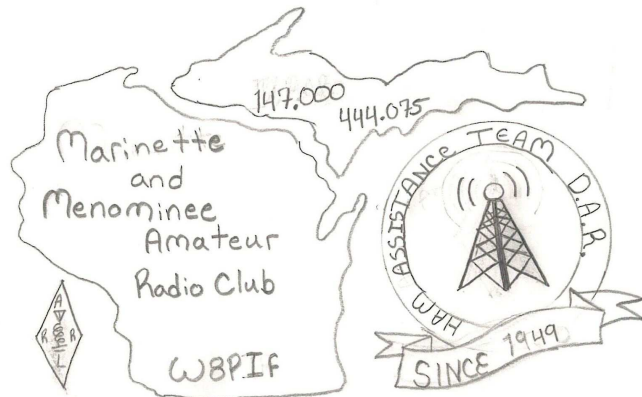 147.000
444.075
Marinette
and
Menominee
Amateur
Radio Club
W8PIF
HAM ASSISTANCE TEAM D.A.R.
SINCE 1949
A
R R
L